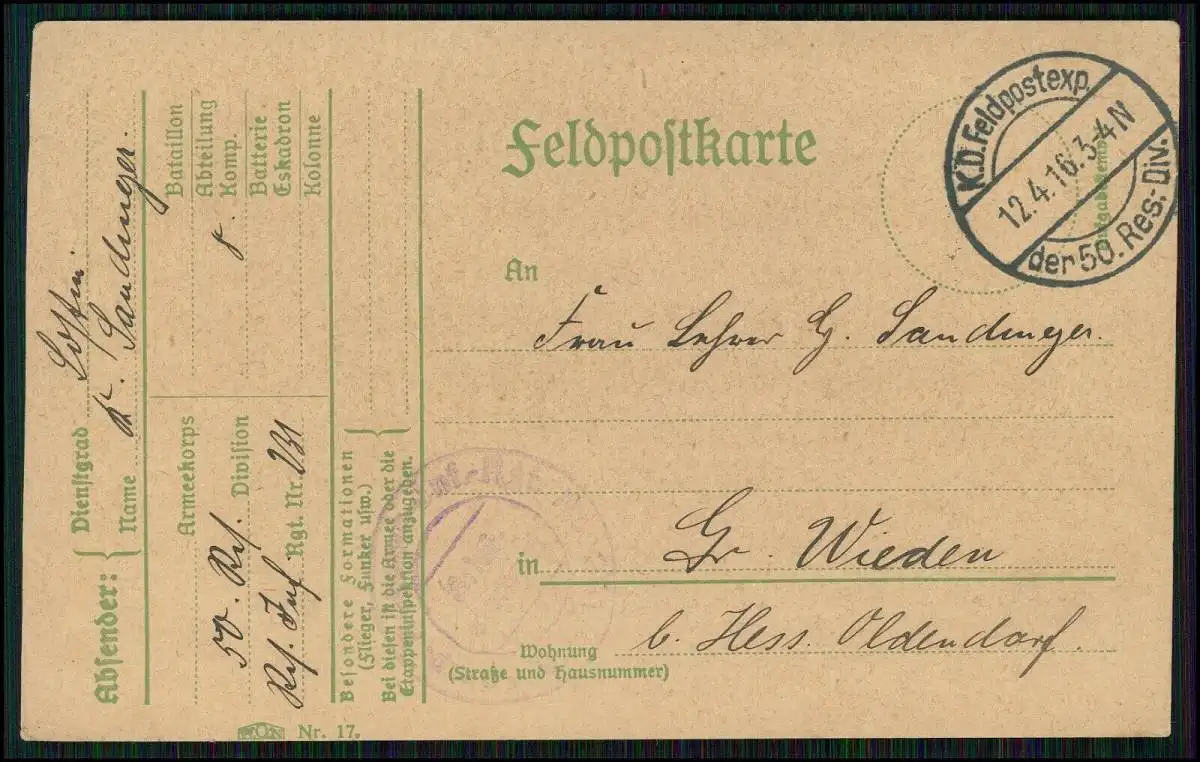 Feldpostkarte
K.D. Feldpostexp.
12.4.16. 3-4N
der 50. Res.-Div.
An
Frau Lehrer G. Sandmeyer.
in Gr. Wieden
b. Hess. Oldendorf.
Wohnung
(Straße und Hausnummer)
Absender:
Dienstgrad
Name K. Sandmeyer.
Bataillon
Abteilung
Komp. 8.
Batterie
Eskadron
Kolonne
Armeekorps
50. Res. Division
Res. Inf. Rgt. Nr. 231
Besondere Formationen
(Flieger, Funker usw.)
Bei diesen ist die Armee oder die
Etappeninspektion anzugeben.
Nr. 17.